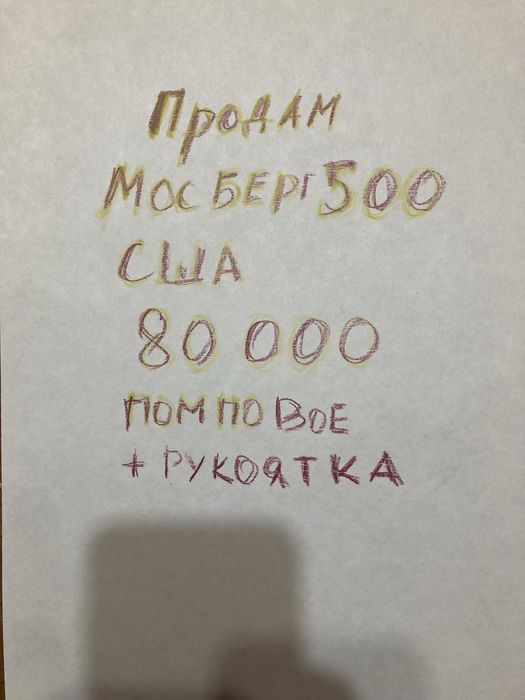 Продам
Мосберг 500
США
80 000
помповое
+ рукоятка